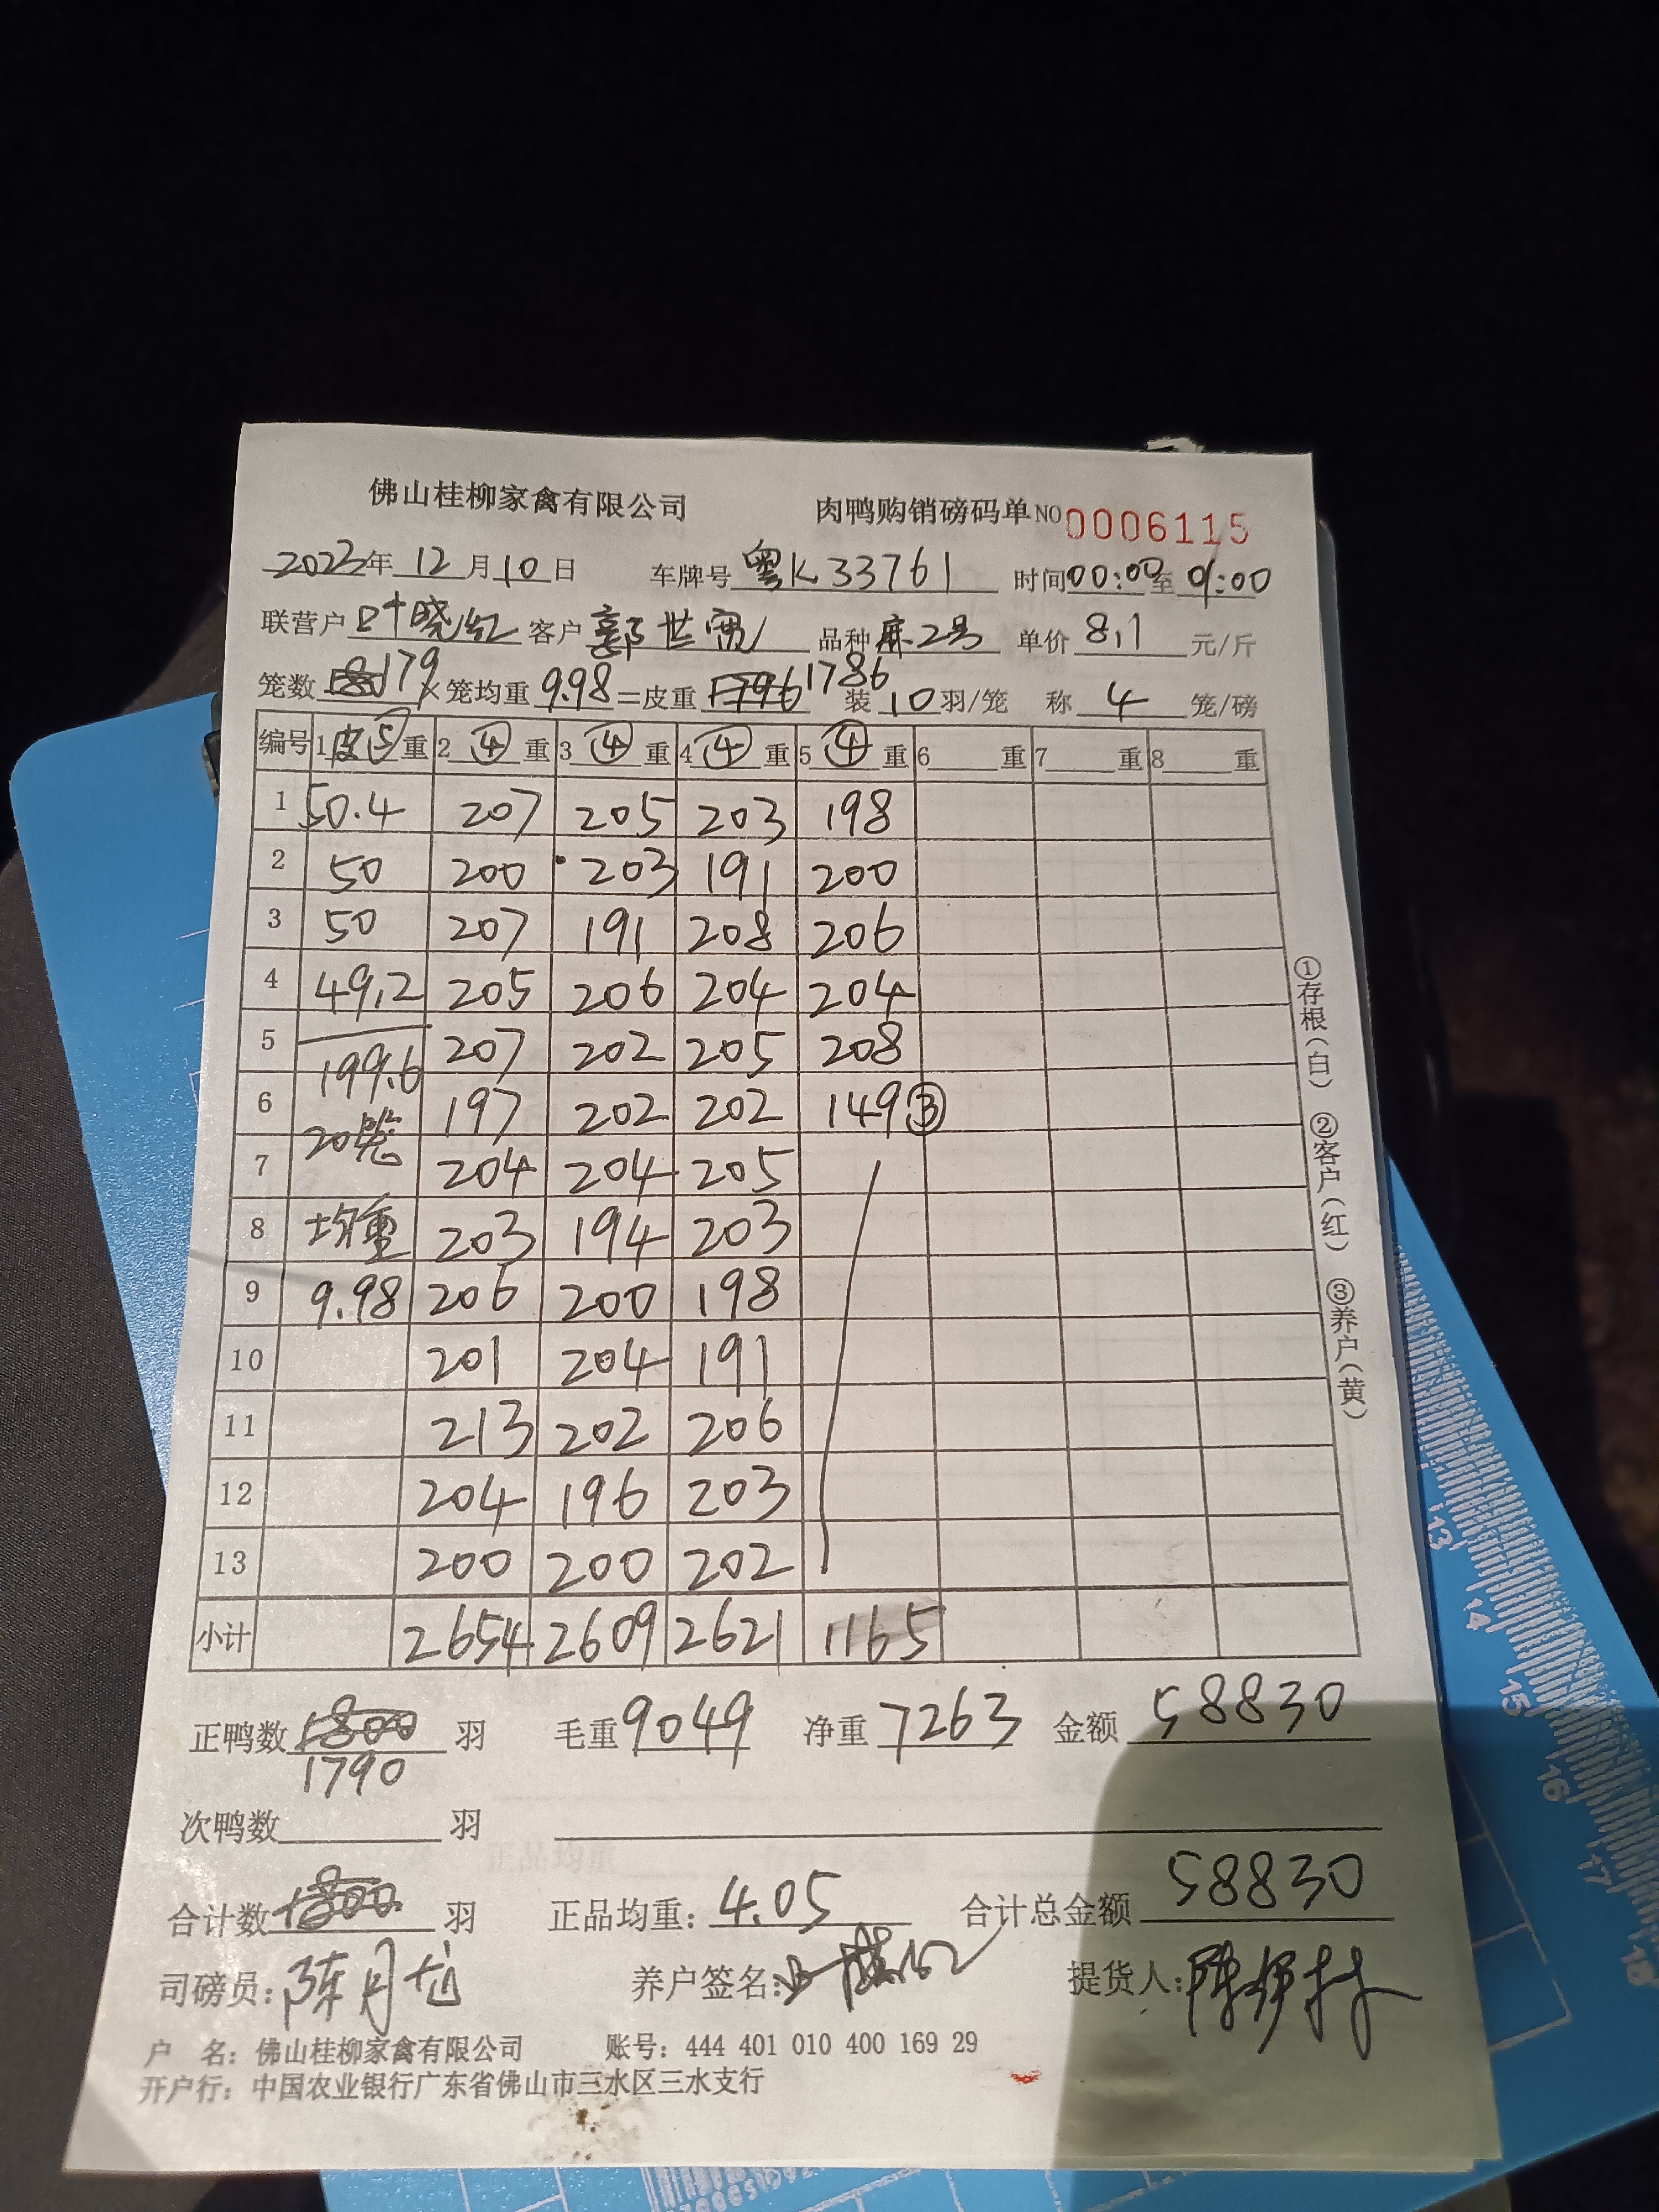 佛山桂柳家禽有限公司 肉鸭购销磅码单 NO 0006115
2022年 12 月 10 日 车牌号 粤K33761 时间 00:00 至 01:00
联营户 叶晓红 客户 郭世宽 品种 麻2号 单价 8,1 元/斤
笼数 180 179 ×笼均重 9.98 =皮重 1796 1786 装 10 羽/笼 称 4 笼/磅
编号 1 皮⑤ 重 2 ④ 重 3 ④ 重 4 ④ 重 5 ④ 重 6 重 7 重 8 重
1 50.4 207 205 203 198
2 50 200 203 191 200
3 50 207 191 208 206
4 49,2 205 206 204 204
5 207 202 205 208
199.6
6 197 202 202 149③
20笼
7 204 204 205
8 均重 203 194 203
9 9.98 206 200 198
10 201 204 191
11 213 202 206
12 204 196 203
13 200 200 202
小计 2654 2609 2621 1165
正鸭数 1800 羽 毛重 9049 净重 7263 金额 58830
1790
次鸭数 羽
合计数 1800 羽 正品均重: 4.05 合计总金额 58830
司磅员: 陈月 养户签名: 提货人: 陈
户 名: 佛山桂柳家禽有限公司 账号: 444 401 010 400 169 29
开户行: 中国农业银行广东省佛山市三水区三水支行
①存根(白) ②客户(红) ③养户(黄)
13
14
15
16
17
18